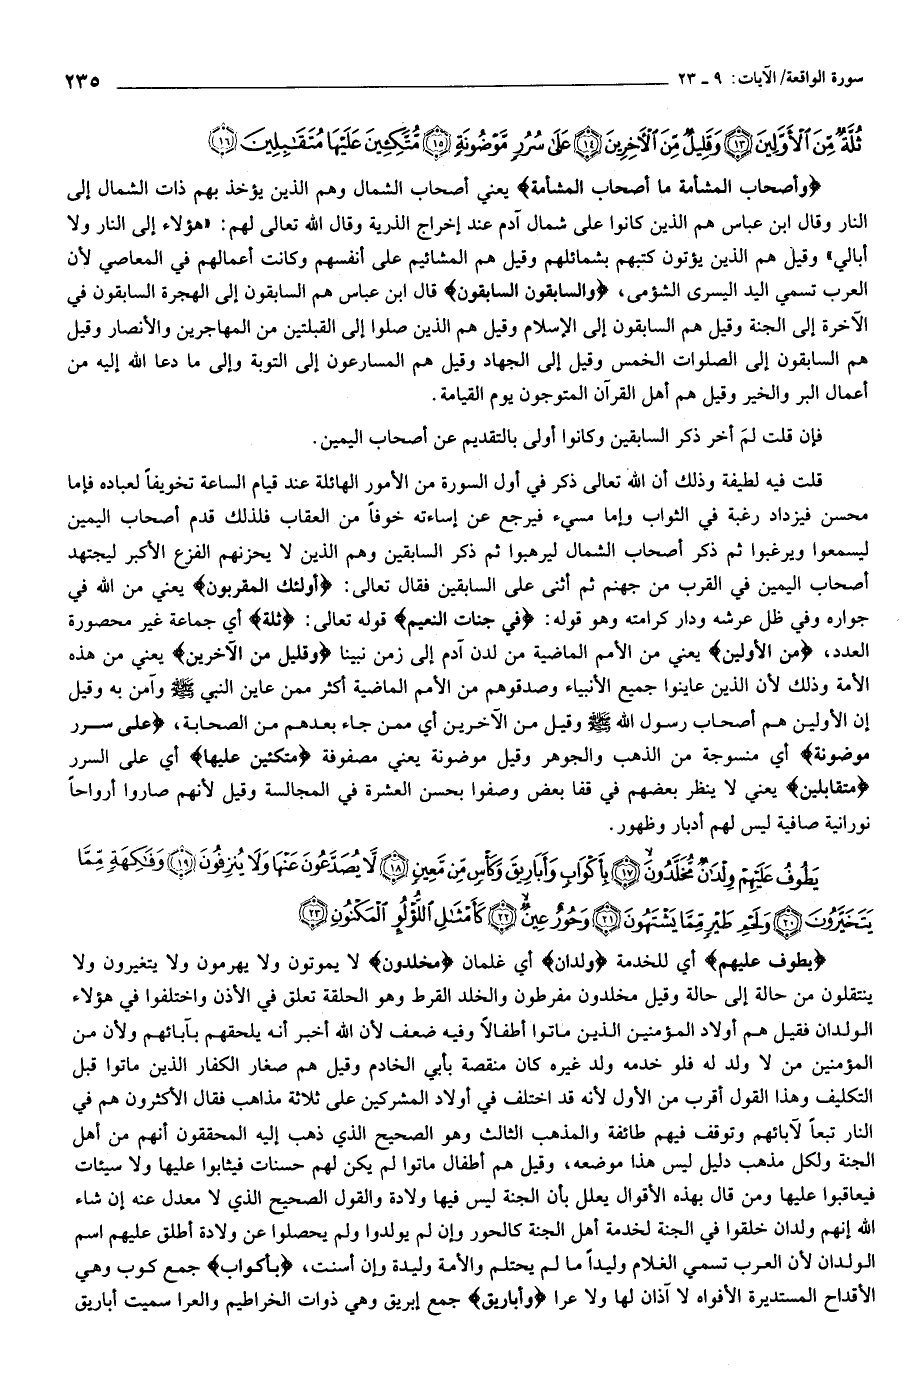 سورة الواقعة/ الآيات: ٩ ـ ٢٣ ٢٣٥
ثُلَّةٌ مِّنَ ٱلْأَوَّلِينَ ﴿١٣﴾ وَقَلِيلٌ مِّنَ ٱلْآخِرِينَ ﴿١٤﴾ عَلَىٰ سُرُرٍ مَّوْضُونَةٍ ﴿١٥﴾ مُّتَّكِـِٔينَ عَلَيْهَا مُتَقَـٰبِلِينَ ﴿١٦﴾
﴿وأصحاب المشأمة ما أصحاب المشأمة﴾ يعني أصحاب الشمال وهم الذين يؤخذ بهم ذات الشمال إلى
النار وقال ابن عباس هم الذين كانوا على شمال آدم عند إخراج الذرية وقال الله تعالى لهم: «هؤلاء إلى النار ولا
أبالي» وقيل هم الذين يؤتون كتبهم بشمائلهم وقيل هم المشائيم على أنفسهم وكانت أعمالهم في المعاصي لأن
العرب تسمي اليد اليسرى الشؤمى، ﴿والسابقون السابقون﴾ قال ابن عباس هم السابقون إلى الهجرة السابقون في
الآخرة إلى الجنة وقيل هم السابقون إلى الإسلام وقيل هم الذين صلوا إلى القبلتين من المهاجرين والأنصار وقيل
هم السابقون إلى الصلوات الخمس وقيل إلى الجهاد وقيل هم المسارعون إلى التوبة وإلى ما دعا الله إليه من
أعمال البر والخير وقيل هم أهل القرآن المتوجون يوم القيامة.
فإن قلت لمَ أخر ذكر السابقين وكانوا أولى بالتقديم عن أصحاب اليمين.
قلت فيه لطيفة وذلك أن الله تعالى ذكر في أول السورة من الأمور الهائلة عند قيام الساعة تخويفاً لعباده فإما
محسن فيزداد رغبة في الثواب وإما مسيء فيرجع عن إساءته خوفاً من العقاب فلذلك قدم أصحاب اليمين
ليسمعوا ويرغبوا ثم ذكر أصحاب الشمال ليرهبوا ثم ذكر السابقين وهم الذين لا يحزنهم الفزع الأكبر ليجتهد
أصحاب اليمين في القرب من جهنم ثم أثنى على السابقين فقال تعالى: ﴿أولئك المقربون﴾ يعني من الله في
جواره وفي ظل عرشه ودار كرامته وهو قوله: ﴿في جنات النعيم﴾ قوله تعالى: ﴿ثلة﴾ أي جماعة غير محصورة
العدد، ﴿من الأولين﴾ يعني من الأمم الماضية من لدن آدم إلى زمن نبينا ﴿وقليل من الآخرين﴾ يعني من هذه
الأمة وذلك لأن الذين عاينوا جميع الأنبياء وصدقوهم من الأمم الماضية أكثر ممن عاين النبي ﷺ وآمن به وقيل
إن الأولين هم أصحاب رسول الله ﷺ وقيل من الآخرين أي ممن جاء بعدهم من الصحابة، ﴿على سرر
موضونة﴾ أي منسوجة من الذهب والجوهر وقيل موضونة يعني مصفوفة ﴿متكئين عليها﴾ أي على السرر
﴿متقابلين﴾ يعني لا ينظر بعضهم في قفا بعض وصفوا بحسن العشرة في المجالسة وقيل لأنهم صاروا أرواحاً
نورانية صافية ليس لهم أدبار وظهور.
يَطُوفُ عَلَيْهِمْ وِلْدَٰنٌ مُّخَلَّدُونَ ﴿١٧﴾ بِأَكْوَابٍ وَأَبَارِيقَ وَكَأْسٍ مِّن مَّعِينٍ ﴿١٨﴾ لَّا يُصَدَّعُونَ عَنْهَا وَلَا يُنزِفُونَ ﴿١٩﴾ وَفَـٰكِهَةٍ مِّمَّا
يَتَخَيَّرُونَ ﴿٢٠﴾ وَلَحْمِ طَيْرٍ مِّمَّا يَشْتَهُونَ ﴿٢١﴾ وَحُورٌ عِينٌ ﴿٢٢﴾ كَأَمْثَـٰلِ ٱللُّؤْلُوِٕ ٱلْمَكْنُونِ ﴿٢٣﴾
﴿يطوف عليهم﴾ أي للخدمة ﴿ولدان﴾ أي غلمان ﴿مخلدون﴾ لا يموتون ولا يهرمون ولا يتغيرون ولا
ينتقلون من حالة إلى حالة وقيل مخلدون مفرطون والخلد القرط وهو الحلقة تعلق في الأذن واختلفوا في هؤلاء
الولدان فقيل هم أولاد المؤمنين الذين ماتوا أطفالاً وفيه ضعف لأن الله أخبر أنه يلحقهم بآبائهم ولأن من
المؤمنين من لا ولد له فلو خدمه ولد غيره كان منقصة بأبي الخادم وقيل هم صغار الكفار الذين ماتوا قبل
التكليف وهذا القول أقرب من الأول لأنه قد اختلف في أولاد المشركين على ثلاثة مذاهب فقال الأكثرون هم في
النار تبعاً لآبائهم وتوقف فيهم طائفة والمذهب الثالث وهو الصحيح الذي ذهب إليه المحققون أنهم من أهل
الجنة ولكل مذهب دليل ليس هذا موضعه، وقيل هم أطفال ماتوا لم يكن لهم حسنات فيثابوا عليها ولا سيئات
فيعاقبوا عليها ومن قال بهذه الأقوال يعلل بأن الجنة ليس فيها ولادة والقول الصحيح الذي لا معدل عنه إن شاء
الله إنهم ولدان خلقوا في الجنة لخدمة أهل الجنة كالحور وإن لم يولدوا ولم يحصلوا عن ولادة أطلق عليهم اسم
الولدان لأن العرب تسمي الغلام وليداً ما لم يحتلم والأمة وليدة وإن أسنت، ﴿بأكواب﴾ جمع كوب وهي
الأقداح المستديرة الأفواه لا آذان لها ولا عرا ﴿وأباريق﴾ جمع إبريق وهي ذوات الخراطيم والعرا سميت أباريق